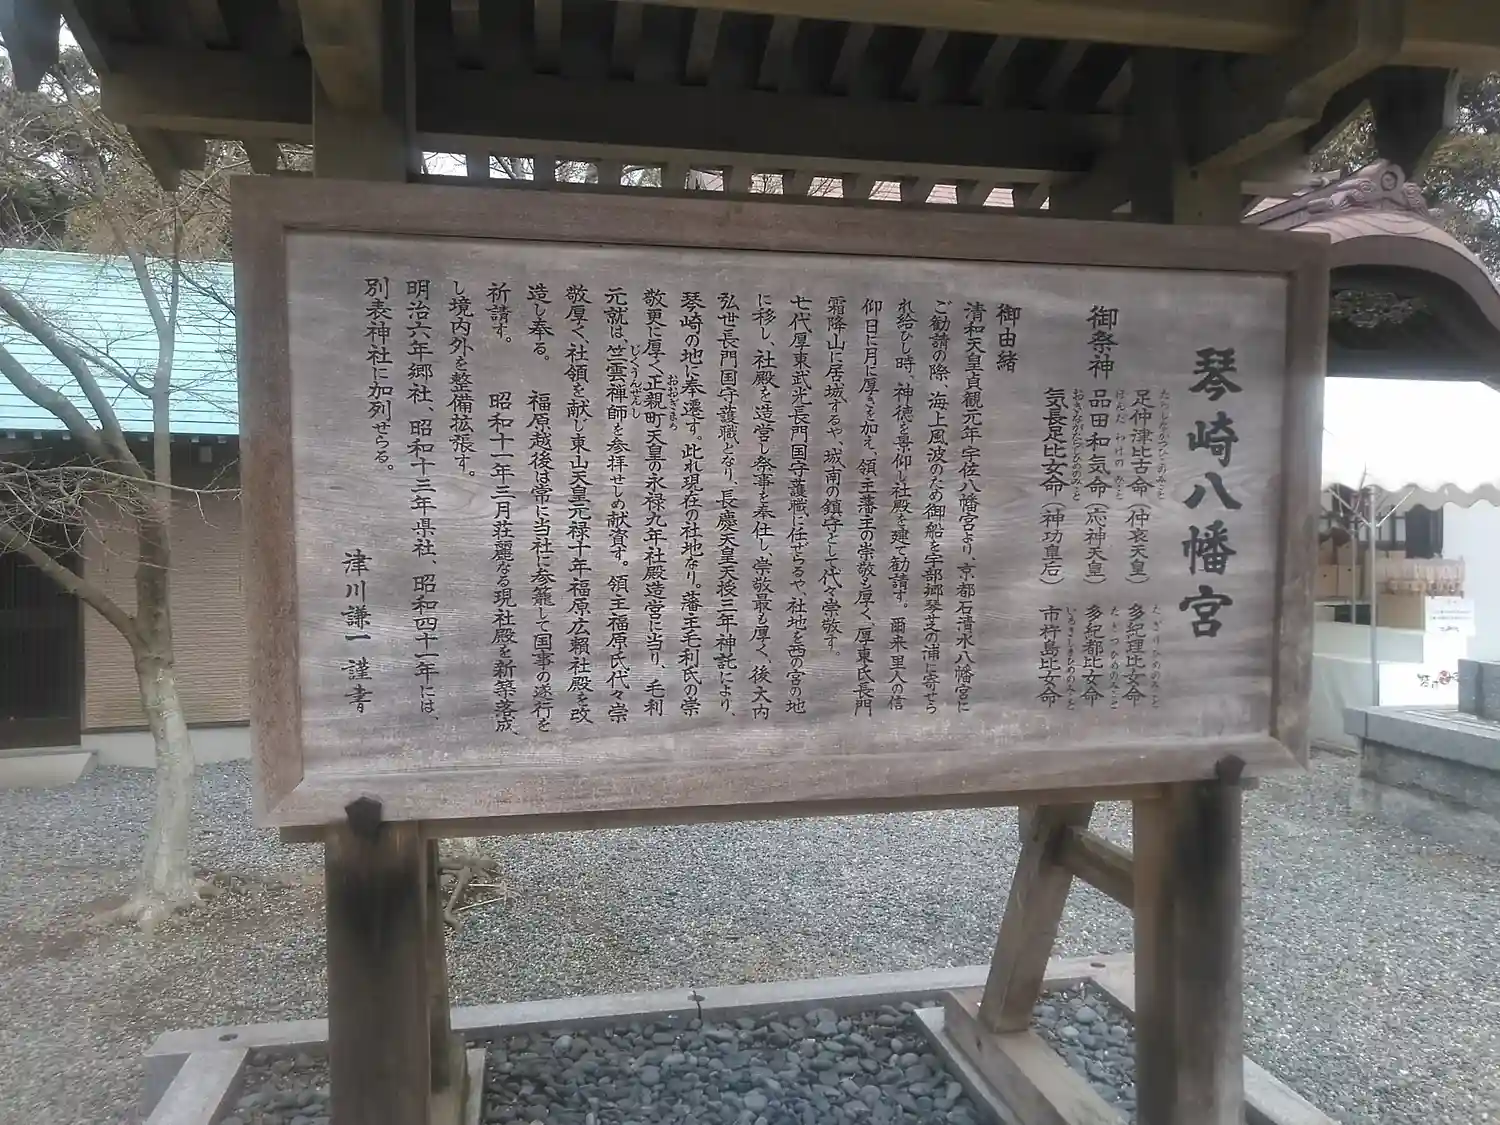 琴崎八幡宮
御祭神
足仲津比古命(仲哀天皇) 多紀理比女命
たらしなかつひこのみこと たぎりひめのみこと
品田和気命(応神天皇) 多紀都比女命
ほんだわけのみこと たぎつひめのみこと
気長足比女命(神功皇后) 市杵島比女命
おきながたらしひめのみこと いちきしまひめのみこと
御由緒
清和天皇貞観元年宇佐八幡宮より、京都石清水八幡宮に
ご勧請の際、海上風波のため御船を宇部郷琴芝の浦に寄せら
れ給ひし時、神徳を景仰し社殿を建て勧請す。爾来里人の信
仰日に月に厚きを加え、領主藩主の崇敬も厚く、厚東氏長門
霜降山に居城するや、城南の鎮守として代々崇敬す。
七代厚東武光長門国守護職に任ぜらるや、社地を西の宮の地
に移し、社殿を造営し祭事を奉仕し、崇敬最も厚く、後大内
弘世長門国守護職となり、長慶天皇天授三年神託により、
琴崎の地に奉遷す。此れ現在の社地なり。藩主毛利氏の崇
敬更に厚く正親町天皇の永禄九年社殿造営に当り、毛利
おおぎまち
元就は、竺雲禅師を参拝せしめ献資す。領主福原氏代々崇
じくうんぜんし
敬厚く、社領を献じ東山天皇元禄十年福原広頼社殿を改
造し奉る。 福原越後は常に当社に参籠して国事の遂行を
祈請す。 昭和十一年三月荘麗なる現社殿を新築落成、
し境内外を整備拡張す。
明治六年郷社、昭和十三年県社、昭和四十一年には、
別表神社に加列せらる。
津川謙一 謹書